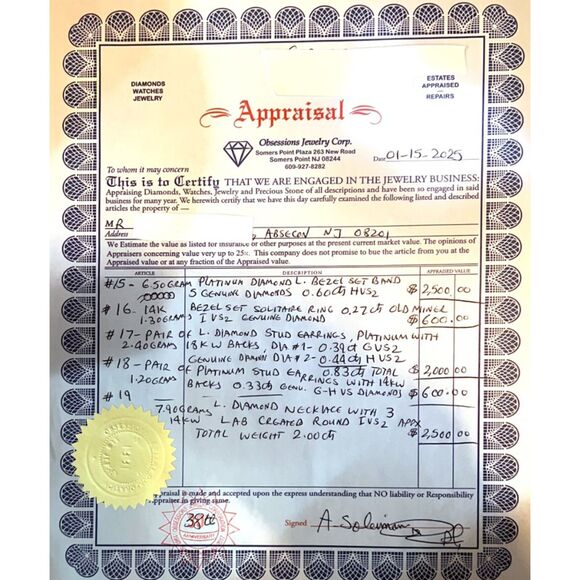 DIAMONDS
WATCHES
JEWELRY
ESTATES
APPRAISED
REPAIRS
Appraisal
Obsessions Jewelry Corp.
Somers Point Plaza 263 New Road
Somers Point NJ 08244
609-927-8282
Date 01-15-2025
To whom it may concern
This is to Certify THAT WE ARE ENGAGED IN THE JEWELRY BUSINESS:
Appraising Diamonds, Watches, Jewelry and Precious Stone of all descriptions and have been so engaged in said
business for many year. We herewith certify that we have this day carefully examined the following listed and described
articles the property of
MR
Address ABSECON NJ 08201
We Estimate the value as listed for insurance or other purposes at the present current market value. The opinions of
Appraisers concerning value very up to 25%. This company does not promise to buy the article from you at the
Appraised value or at any fraction of the Appraised value.
ARTICLE DESCRIPTION APPRAISED VALUE
#15 - 6.50 GRAM PLATINUM DIAMOND L. BEZEL SET BAND
5 GENUINE DIAMONDS 0.60ct HVS2 $2,500.00
#16 - 14K BEZEL SET SOLITAIRE RING 0.27ct OLD MINER
1.30GRAMS I VS2 GENUINE DIAMOND $600.00
#17 - PAIR OF L. DIAMOND STUD EARRINGS, PLATINUM WITH
2.40GRAMS 18KW BACKS, DIA #1 - 0.39ct GVS2
GENUINE DIAMN DIA #2 - 0.44ct HVS2
0.83ct TOTAL $2,000.00
#18 - PAIR OF PLATINUM STUD EARRINGS WITH 14KW
1.20GRAMS BACKS 0.33ct GENU. G-H VS DIAMONDS $600.00
#19
7.90GRAMS L. DIAMOND NECKLACE WITH 3
14KW LAB CREATED ROUND I VS2 APPX
TOTAL WEIGHT 2.00ct $2,500.00
appraisal is made and accepted upon the express understanding that NO liability or Responsibility
Appraiser in giving same.
38th
ANNIVERSARY
Signed A. Soleiman